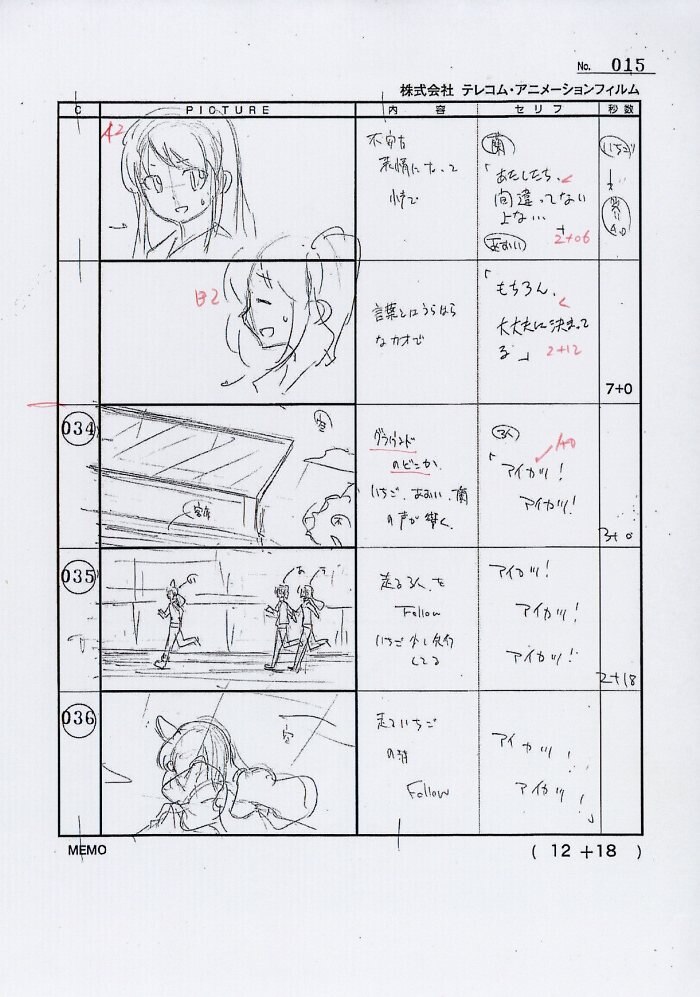 No. 015
株式会社 テレコム・アニメーションフィルム
C PICTURE 内容 セリフ 秒数
A2
不安な
表情になって
蘭
「あたしたち、
間違ってない
よな…
2+06
あおい
いちご
B2
言葉とはうらはら
なカオで
「もちろん、
大丈夫に決まって
る」 2+12
7+0
034
空
木
グラウンド
のどこか
いちご、あおい、蘭
の声が響く。
3人
「アイカツ!
アイカツ!
3+0
035
い あ
走る3人を
Follow
いちご少し先行
してる
アイカツ!
アイカツ!
アイカツ!
2+18
036
空
走るいちご
Follow
アイカツ!
アイカツ!」
MEMO
( 12 +18 )